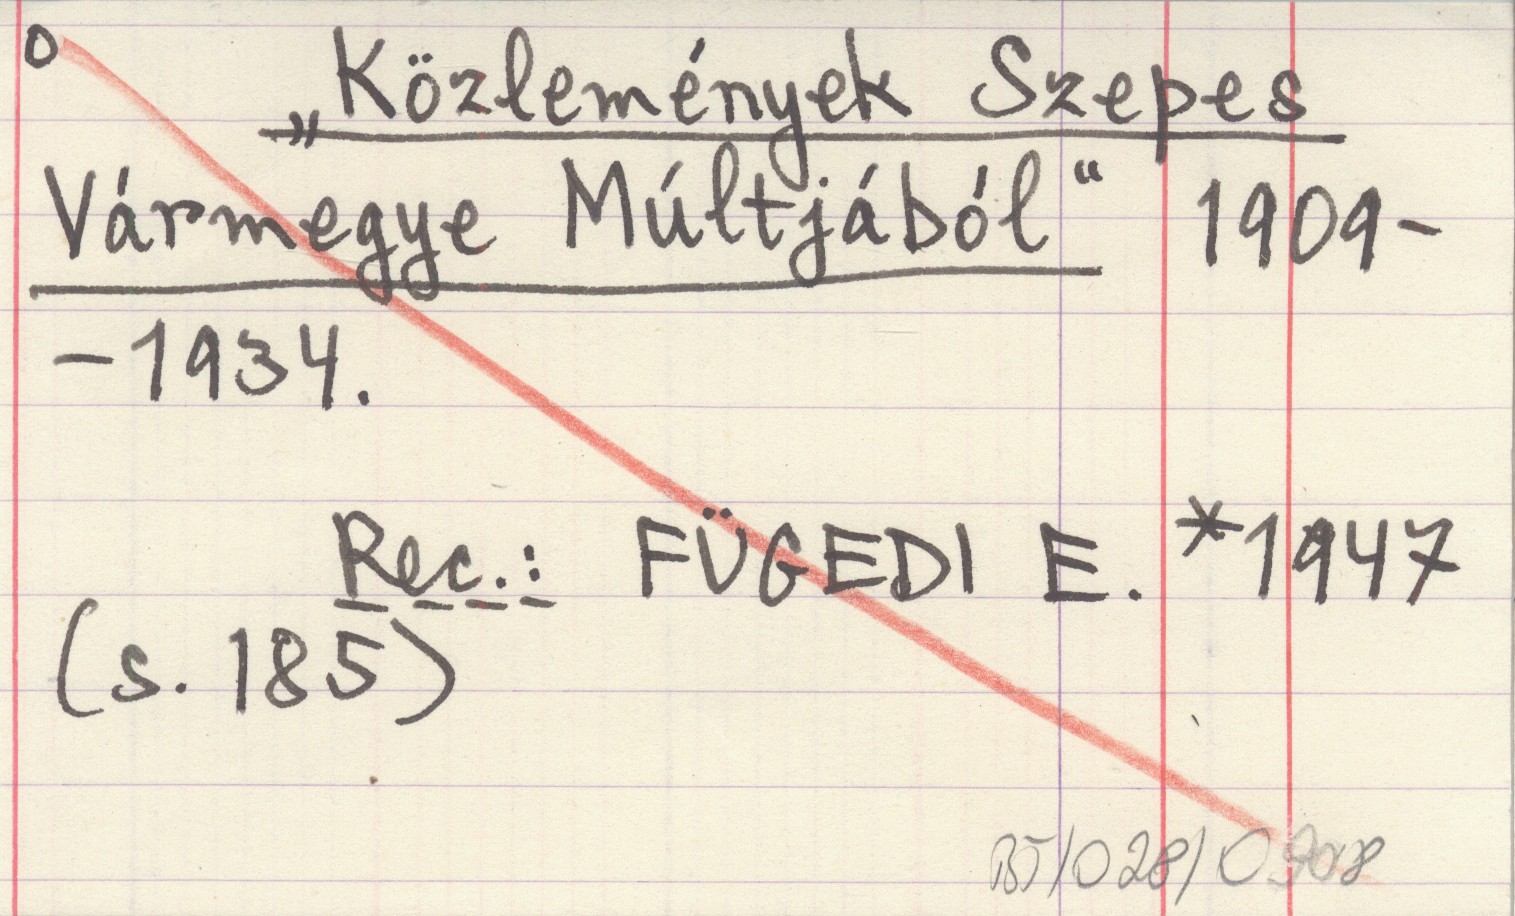 0
„Közlemények Szepes
Vármegye Múltjából“ 1909-
-1934.
Rec.: FÜGEDI E. *1947
(s. 185)
BJ/028/0908